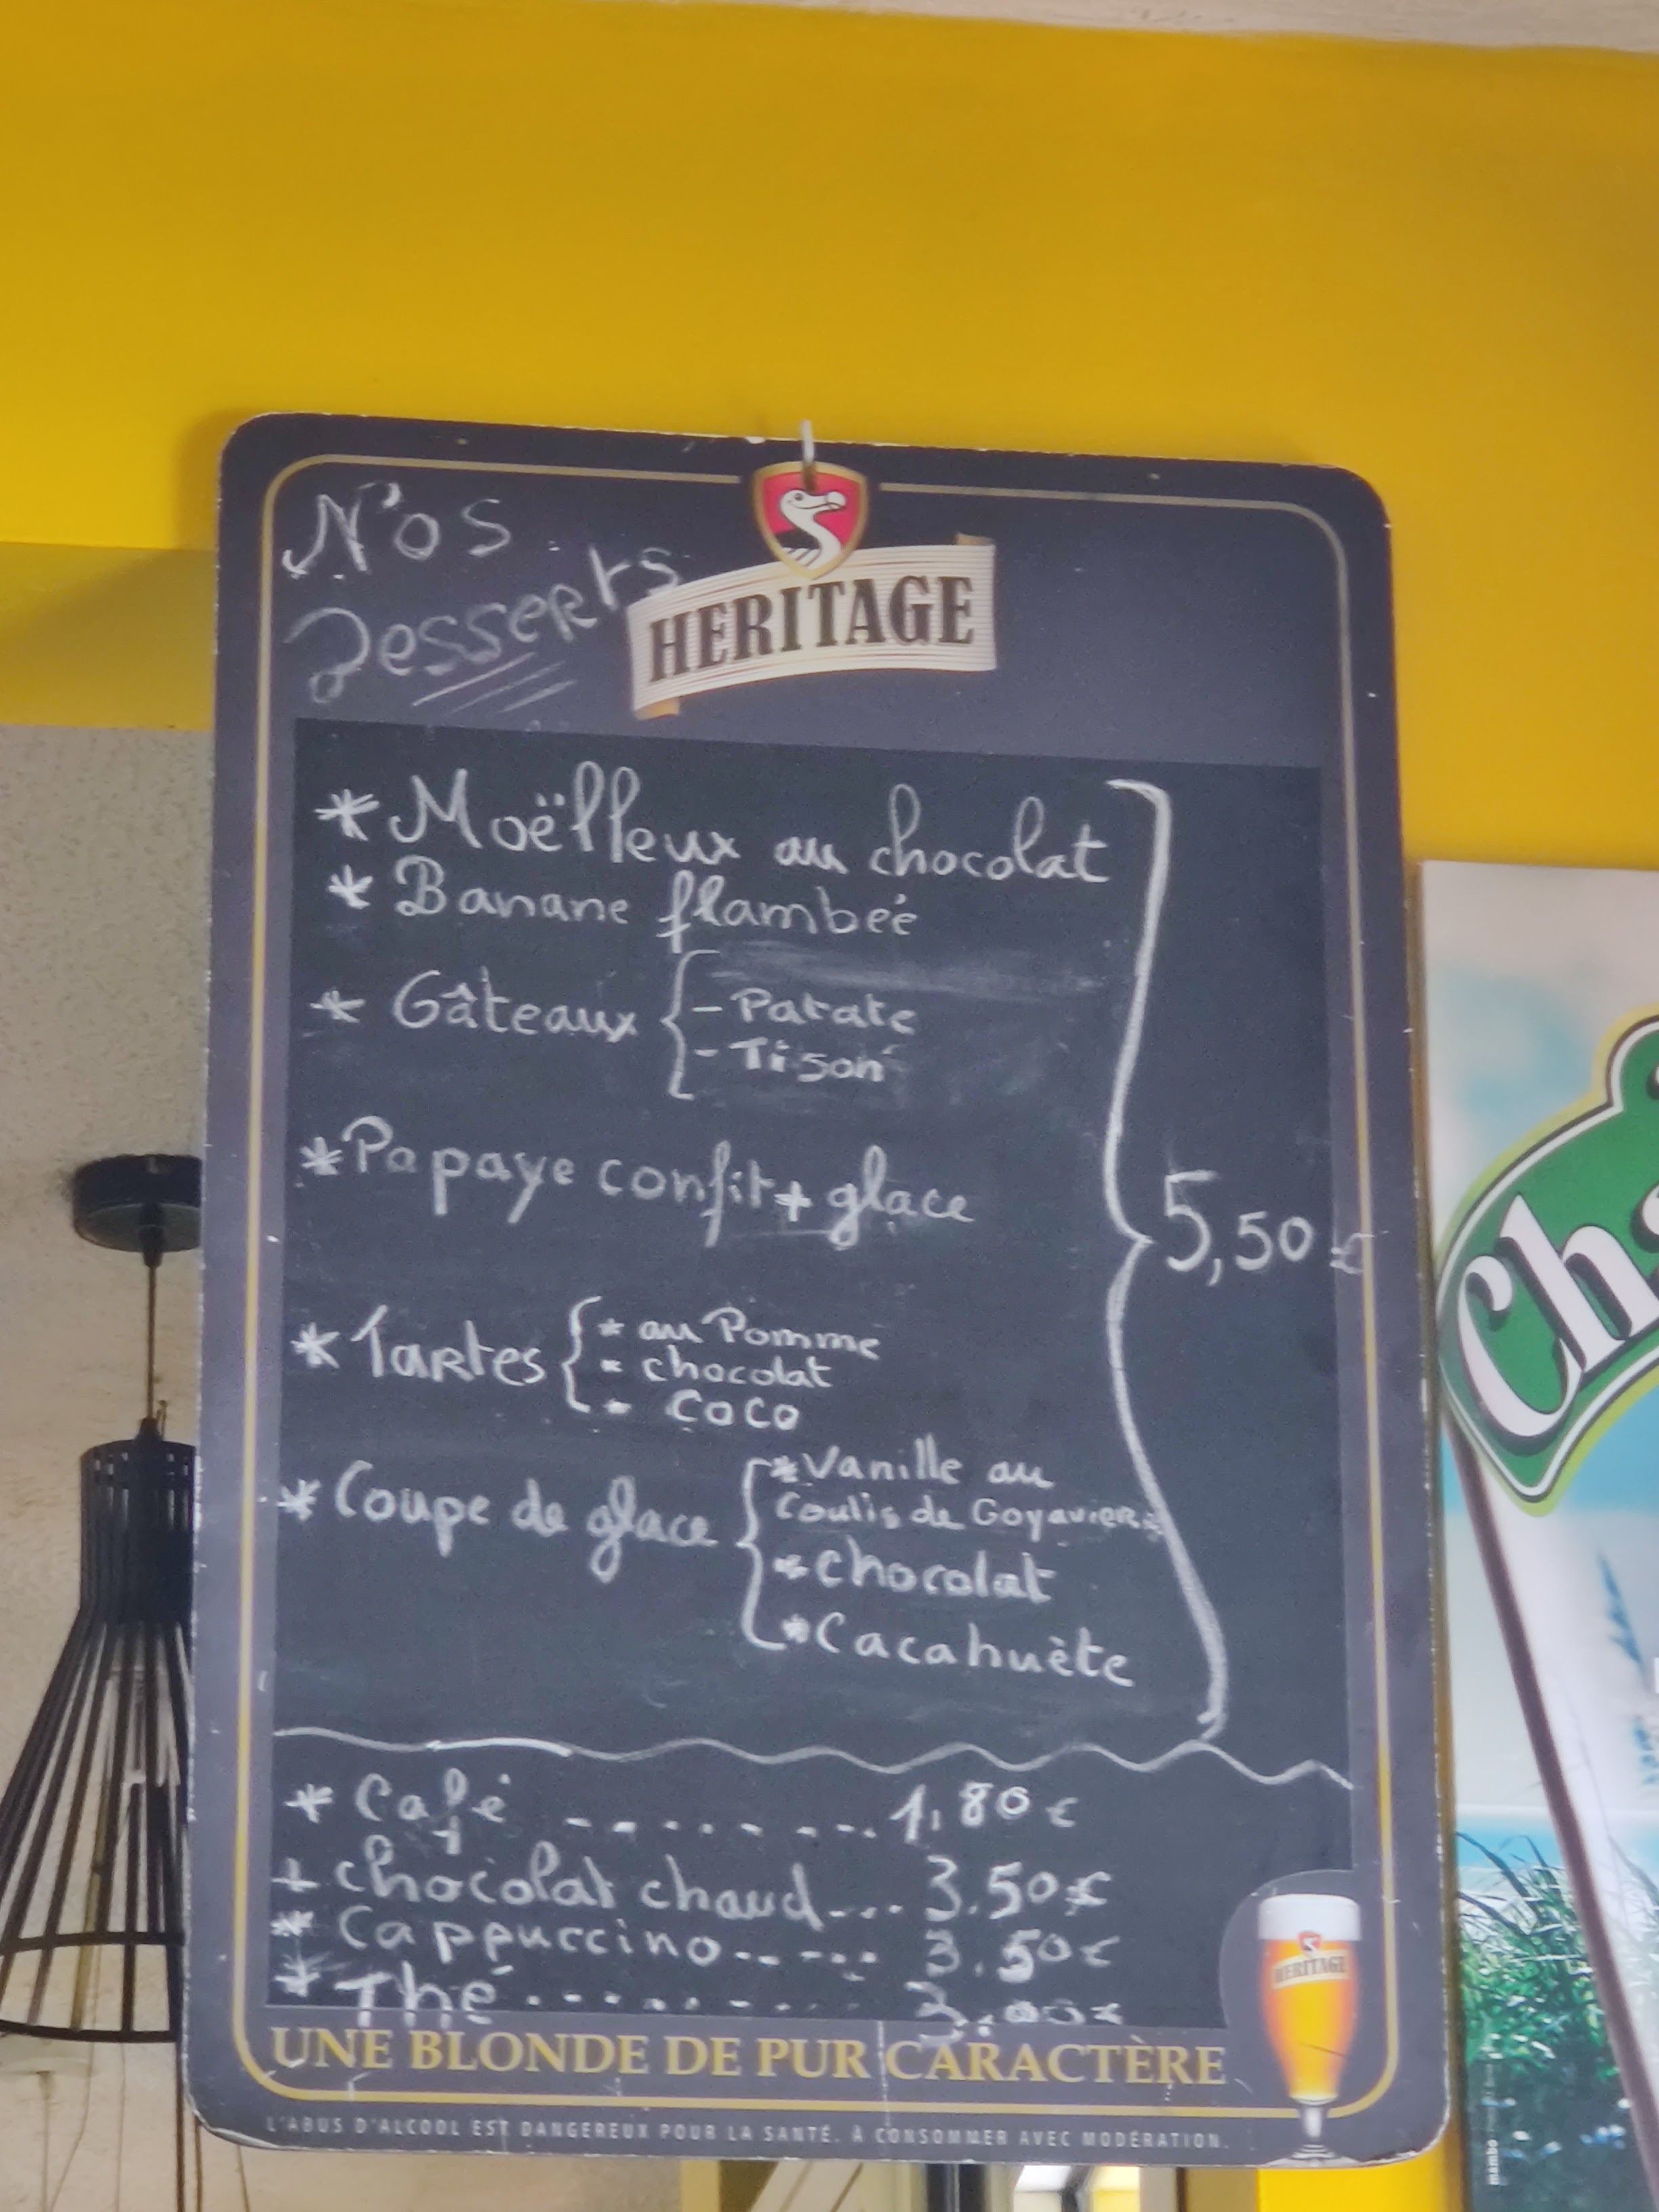 Nos
Desserts
HERITAGE
* Moëlleux au chocolat
* Banane flambeé
* Gâteaux { - Patate
- Tison
* Papaye confit + glace
5,50 €
* Tartes { * au Pomme
* chocolat
* coco
* Coupe de glace { * Vanille au
coulis de Goyavier
* chocolat
* Cacahuète
* Café ......... 1,80 €
+ chocolat chaud .... 3.50 €
* Cappuccino ...... 3.50 €
* Thé ......... 3.00 €
HERITAGE
UNE BLONDE DE PUR CARACTÈRE
L'ABUS D'ALCOOL EST DANGEREUX POUR LA SANTÉ. À CONSOMMER AVEC MODÉRATION.
Ch
mambo